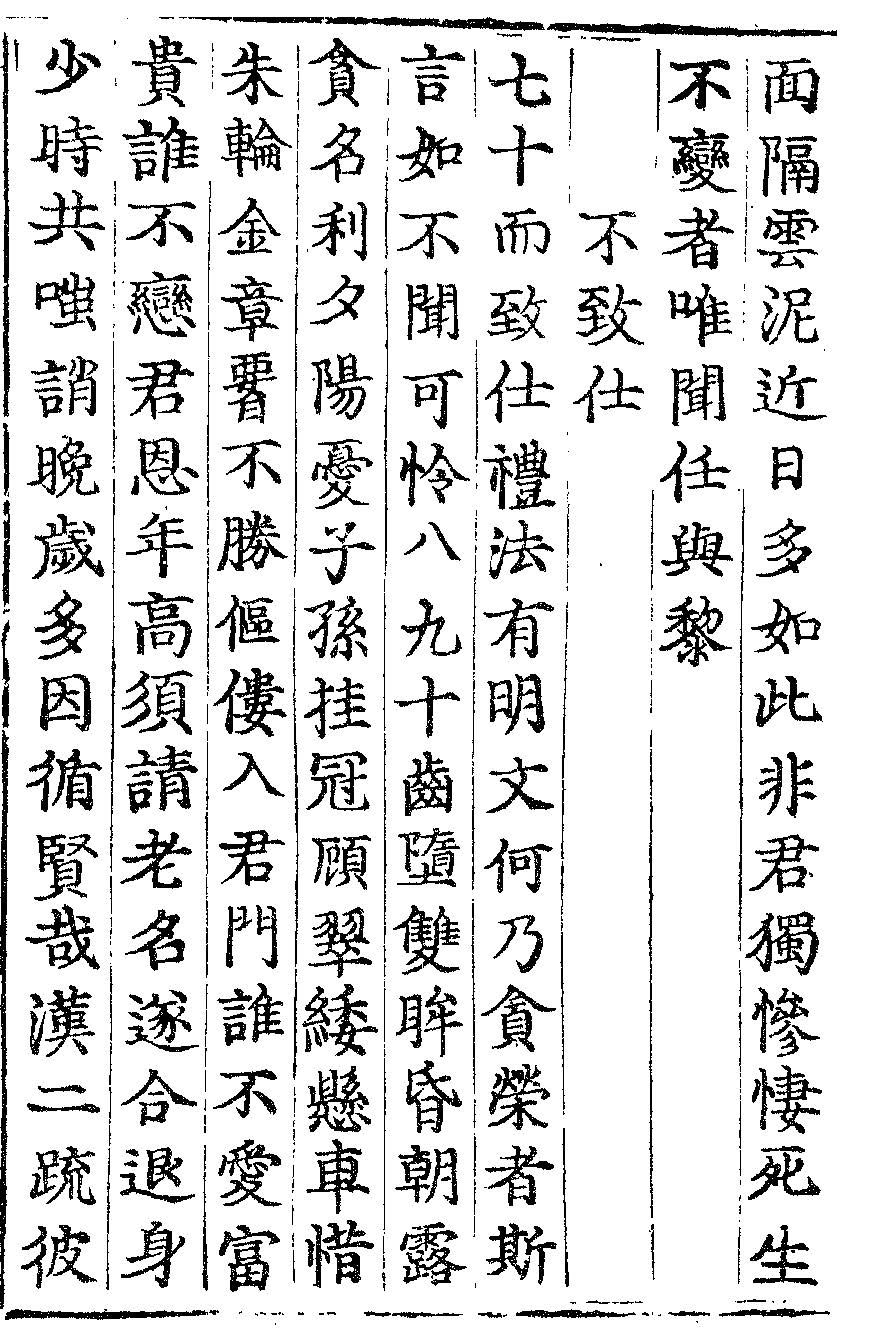 面隔雲泥近日多如此非君獨慘悽死生
不變者唯聞任與黎
不致仕
七十而致仕禮法有明文何乃貪榮者斯
言如不聞可怜八九十齒墮雙眸昏朝露
貪名利夕陽憂子孫挂冠顧翠緌懸車惜
朱輪金章不勝傴僂入君門誰不愛富
貴誰不戀君恩年高須請老名遂合退身
少時共嗤誚晚歲多因循賢哉漢二疏彼